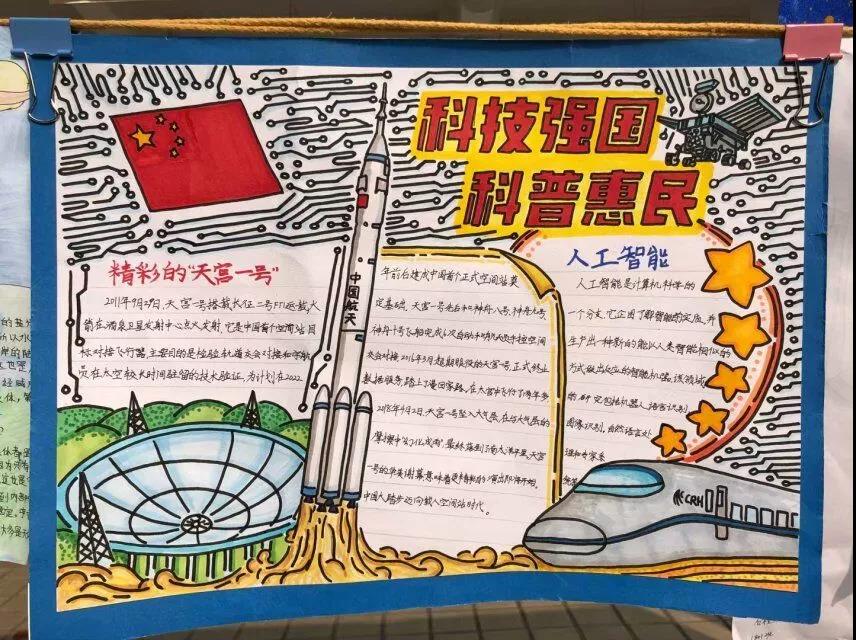 科技强国
科普惠民
精彩的"天宫一号"
2011年9月29日,天宫一号搭载长征二号FT1运载火
箭在酒泉卫星发射中心点火发射,它是中国首个空间站目
标对接飞行器,主要目的是检验轨道交会对接和宇航
员在太空较长时间驻留的技术验证,为计划在2022
中国航天
年前后建成中国首个正式空间站奠
定基础,天宫一号先后和神舟八号,神舟九号
神舟十号飞船完成6次自动和手控空间
交会对接2016年3月超期服役的天宫一号正式终止
数据服务,踏上了漫回家路,在太空中飞行了两年多
2018年4月2日,天宫一号坠入大气层,在与大气层的
摩擦中 最终落到了南太平洋里,天宫
一号的华美谢幕意味着更精彩的演出即将开始,
中国人踏步迈向载人空间站时代。
人工智能
人工智能是计算机科学的
一个分支,它企图了解智能的实质,并
生产出一种新的能以人类智能相似的
方式做出反应的智能机器,该领域
的研究包括机器人,语言识别
图像识别,自然语言处
理和专家系
统等
CRH